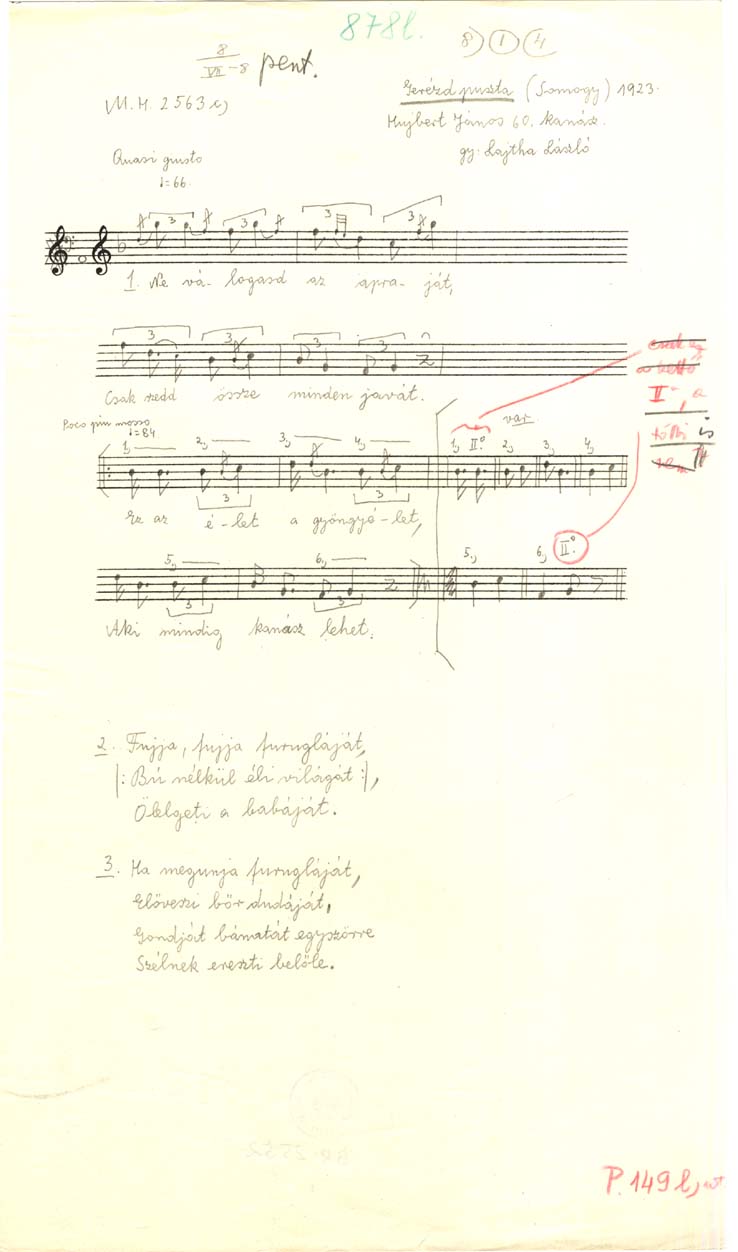 878l.
8) 1 4
8
VII-8 pent.
Gerézd puszta (Somogy) 1923.
M. H. 2563 c)
Hujbert János 60. kanász.
gy: Lajtha László
Quasi giusto
♩=66.
3 3 3 3
1. Ne vá- logasd az apra- ját,
3 3 3 3
Csak szedd össze minden javát.
Poco più mosso
♩=84
var.
1) 2) 3) 4) 1) II° 2) 3) 4)
3 3
Ez az é-let a gyöngyé-let,
II°, a
is
5) 6) 5) 6) II°
3 3
Aki mindig kanász lehet.
2. Fujja, fujja furugláját,
|: Bú nélkül éli világát :|,
Ölelgeti a babáját.
3. Ha megunja furugláját,
Előveszi bőr dudáját,
Gondját bánatát egyszörre
Szélnek ereszti belőle.
P. 149 l,